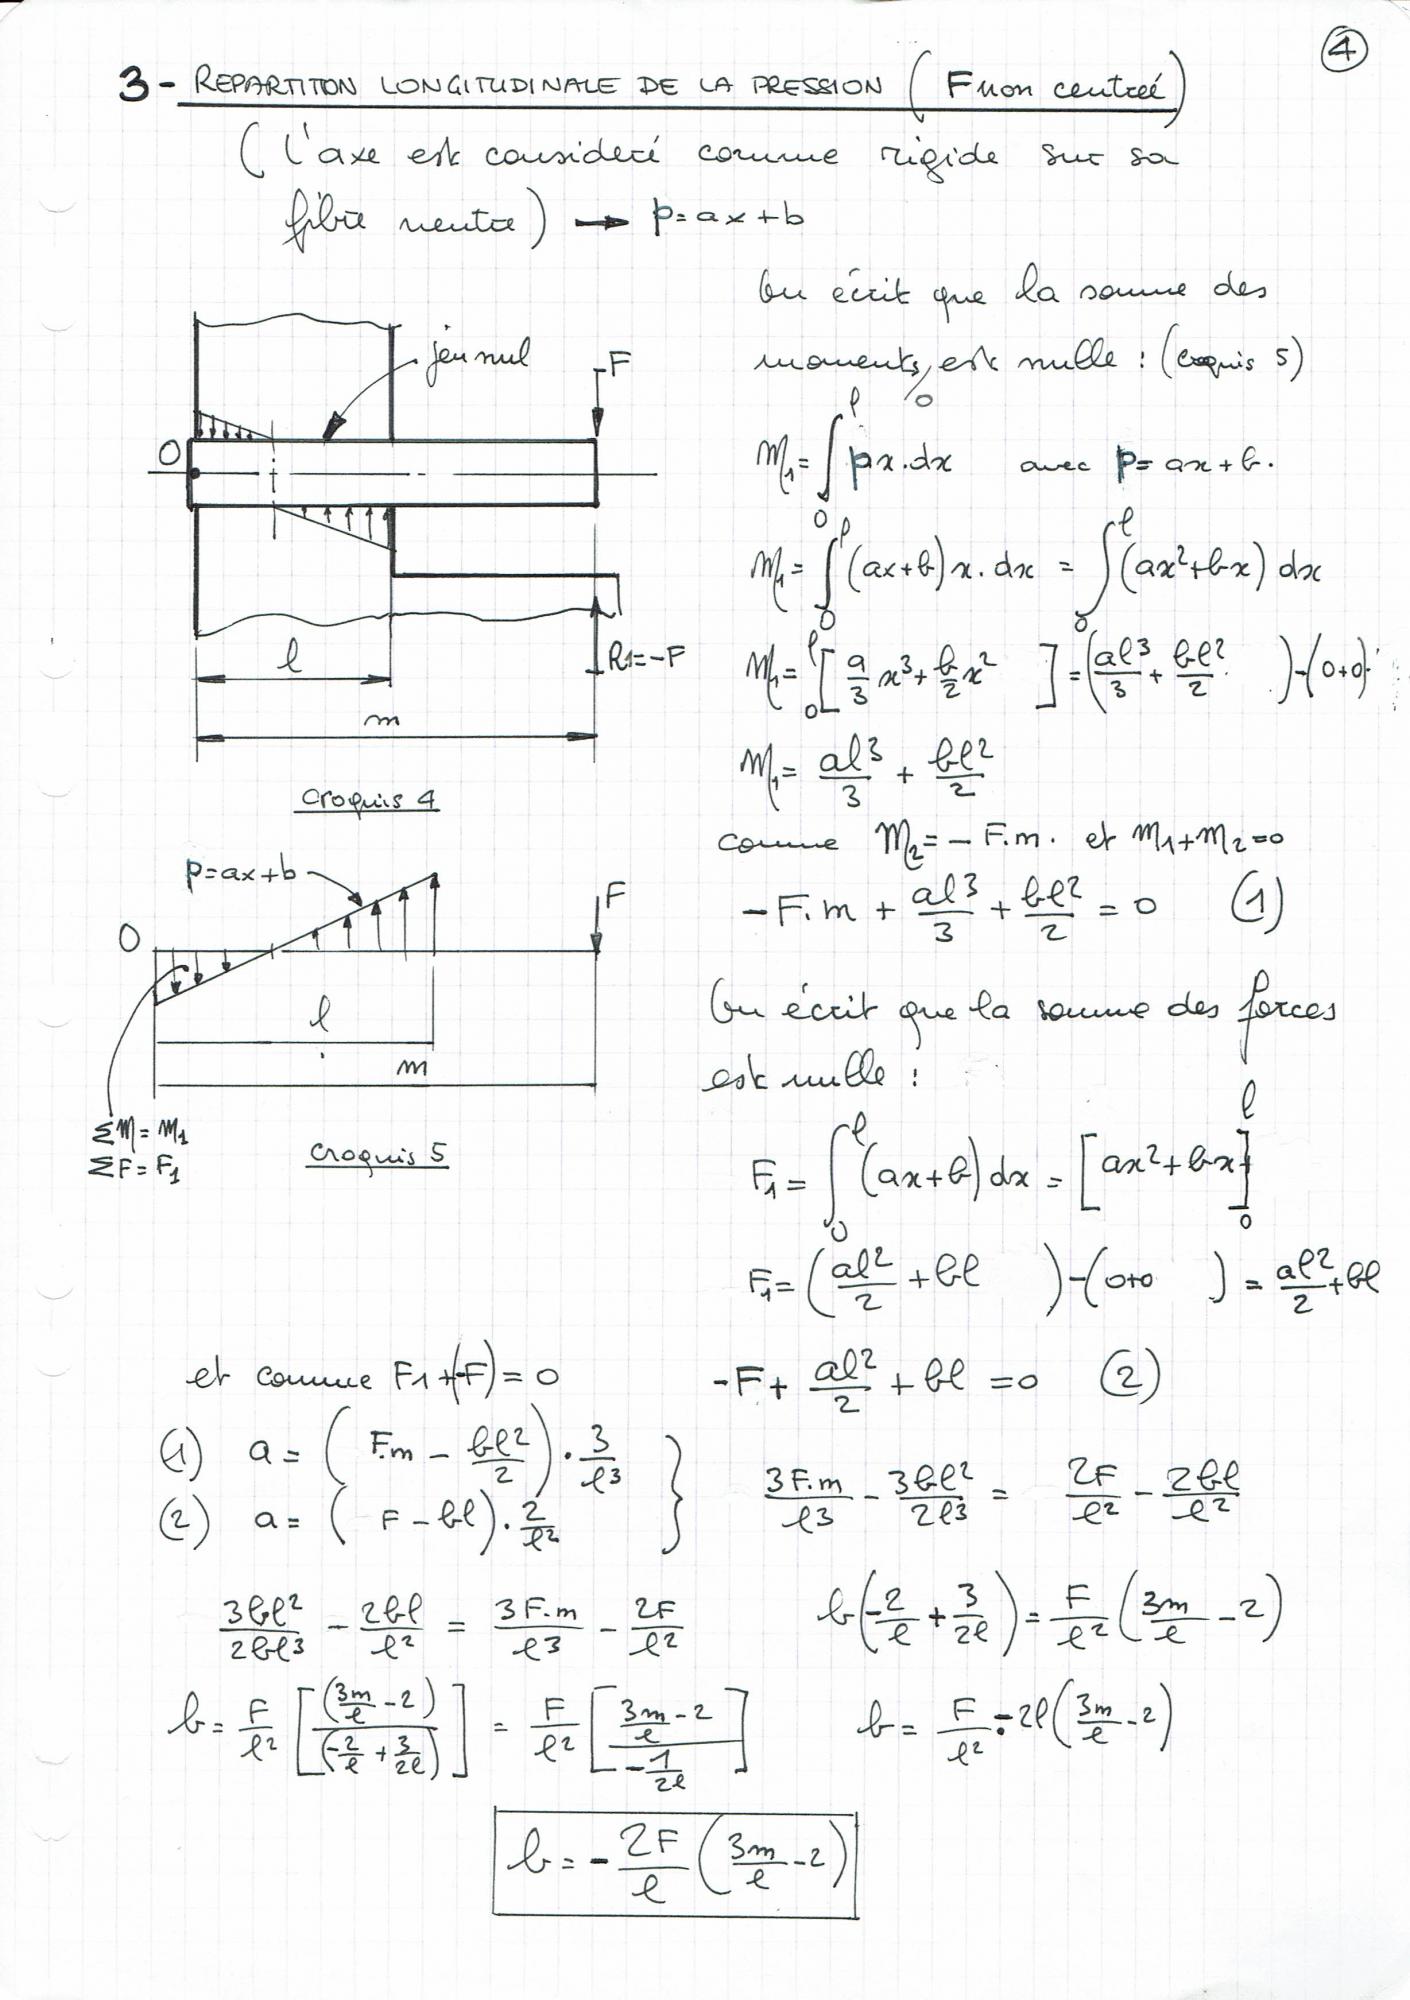 4
3 - REPARTITION LONGITUDINALE DE LA PRESSION (F non centrée)
(l'axe est considéré comme rigide sur sa
fibre neutre) → p = ax + b
On écrit que la somme des
moments/o est nulle : (croquis 5)
M₁ = ∫₀ˡ px.dx avec p = ax + b.
M₁ = ∫₀ˡ (ax+b) x.dx = ∫₀ˡ (ax²+bx) dx
M₁ = ₀ˡ[a/3 x³ + b/2 x²] = (al³/3 + bl²/2) - (0+0)
M₁ = al³/3 + bl²/2
comme M₂ = - F.m. et M₁+M₂=0
- F.m + al³/3 + bl²/2 = 0 (1)
jeu nul
F
O
R1=-F
l
m
croquis 4
p=ax+b
F
O
l
m
ΣM = M₁
ΣF = F₁
croquis 5
On écrit que la somme des forces
est nulle :
F₁ = ∫₀ˡ (ax+b) dx = [ax²+bx]₀ˡ
F₁ = (al²/2 + bl) - (0+0) = al²/2 + bl
et comme F1+(-F) = 0 -F + al²/2 + bl = 0 (2)
(1) a = (F.m - bl²/2) . 3/l³
(2) a = (F - bl) . 2/l²
3F.m/l³ - 3bl²/2l³ = 2F/l² - 2bl/l²
3bl²/2bl³ - 2bl/l² = 3F.m/l³ - 2F/l² b(-2/l + 3/2l) = F/l² (3m/l - 2)
b = F/l² [(3m/l - 2)/(-2/l + 3/2l)] = F/l² [(3m/l - 2)/(-1/2l)] b = F/l² · -2l (3m/l - 2)
b = - 2F/l (3m/l - 2)